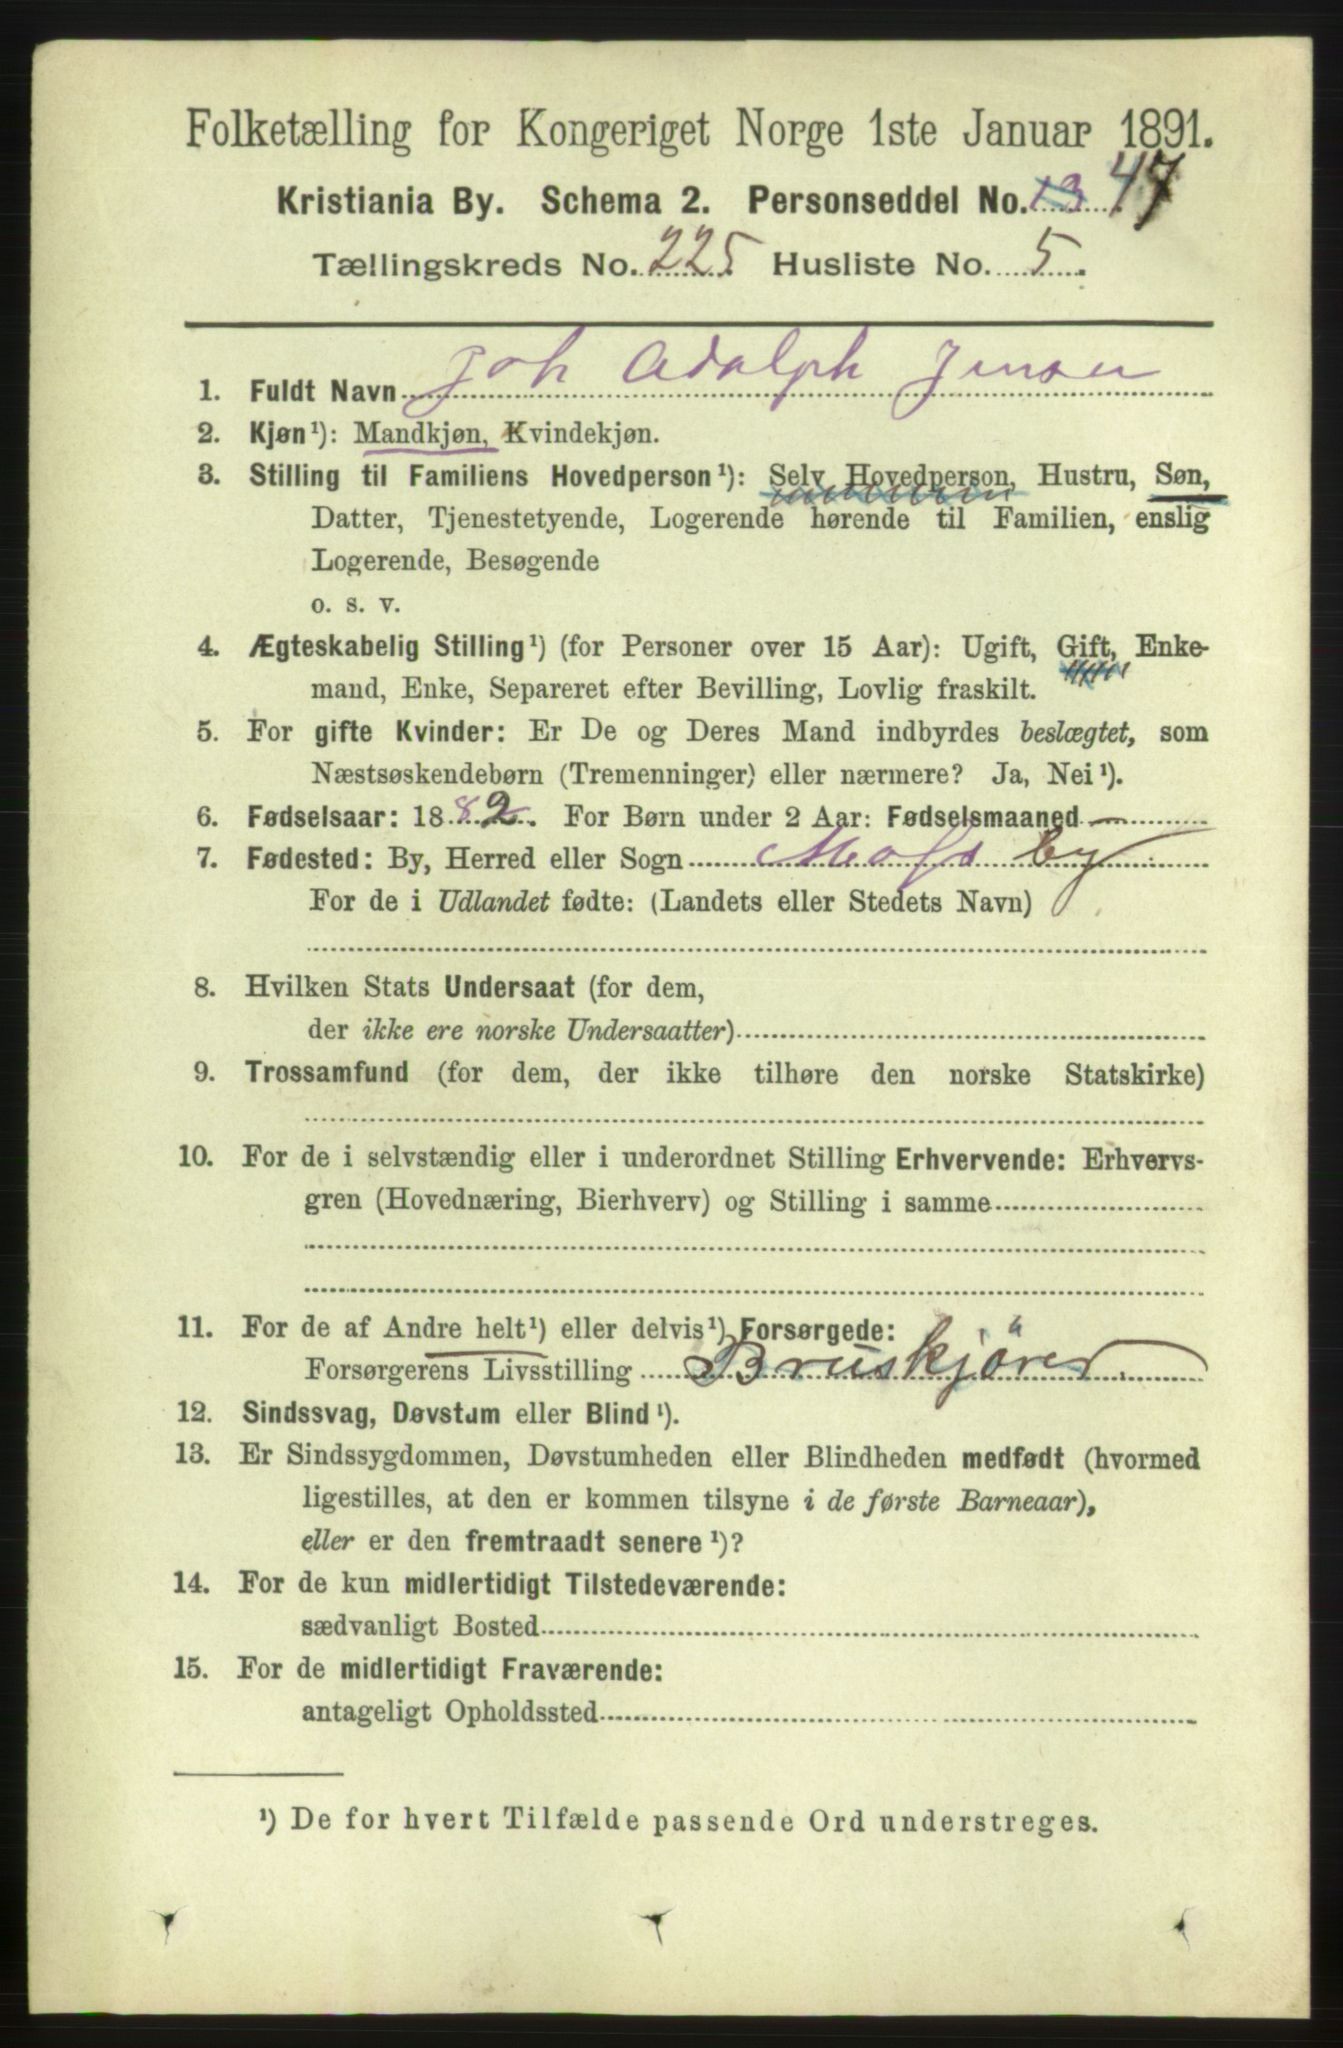 Folketælling for Kongeriget Norge 1ste Januar 1891.
Kristiania By. Schema 2. Personseddel No. 13 47
Tællingskreds No. 225. Husliste No. 5.
1. Fuldt Navn Joh Adolph Jensen
2. Kjøn¹): Mandkjøn, Kvindekjøn.
3. Stilling til Familiens Hovedperson¹): Selv Hovedperson, Hustru, Søn,
Datter, Tjenestetyende, Logerende hørende til Familien, enslig
Logerende, Besøgende
o. s. v.
4. Ægteskabelig Stilling¹) (for Personer over 15 Aar): Ugift, Gift, Enke-
mand, Enke, Separeret efter Bevilling, Lovlig fraskilt.
5. For gifte Kvinder: Er De og Deres Mand indbyrdes beslægtet, som
Næstsøskendebørn (Tremenninger) eller nærmere? Ja, Nei¹).
6. Fødselsaar: 1882. For Børn under 2 Aar: Fødselsmaaned —
7. Fødested: By, Herred eller Sogn Mofs by
For de i Udlandet fødte: (Landets eller Stedets Navn)
8. Hvilken Stats Undersaat (for dem,
der ikke ere norske Undersaatter)
9. Trossamfund (for dem, der ikke tilhøre den norske Statskirke)
10. For de i selvstændig eller i underordnet Stilling Erhvervende: Erhvervs-
gren (Hovednæring, Bierhverv) og Stilling i samme
11. For de af Andre helt¹) eller delvis¹) Forsørgede:
Forsørgerens Livsstilling Bruskjörer.
12. Sindssvag, Døvstum eller Blind¹).
13. Er Sindssygdommen, Døvstumheden eller Blindheden medfødt (hvormed
ligestilles, at den er kommen tilsyne i de første Barneaar),
eller er den fremtraadt senere¹)?
14. For de kun midlertidigt Tilstedeværende:
sædvanligt Bosted
15. For de midlertidigt Fraværende:
antageligt Opholdssted
¹) De for hvert Tilfælde passende Ord understreges.